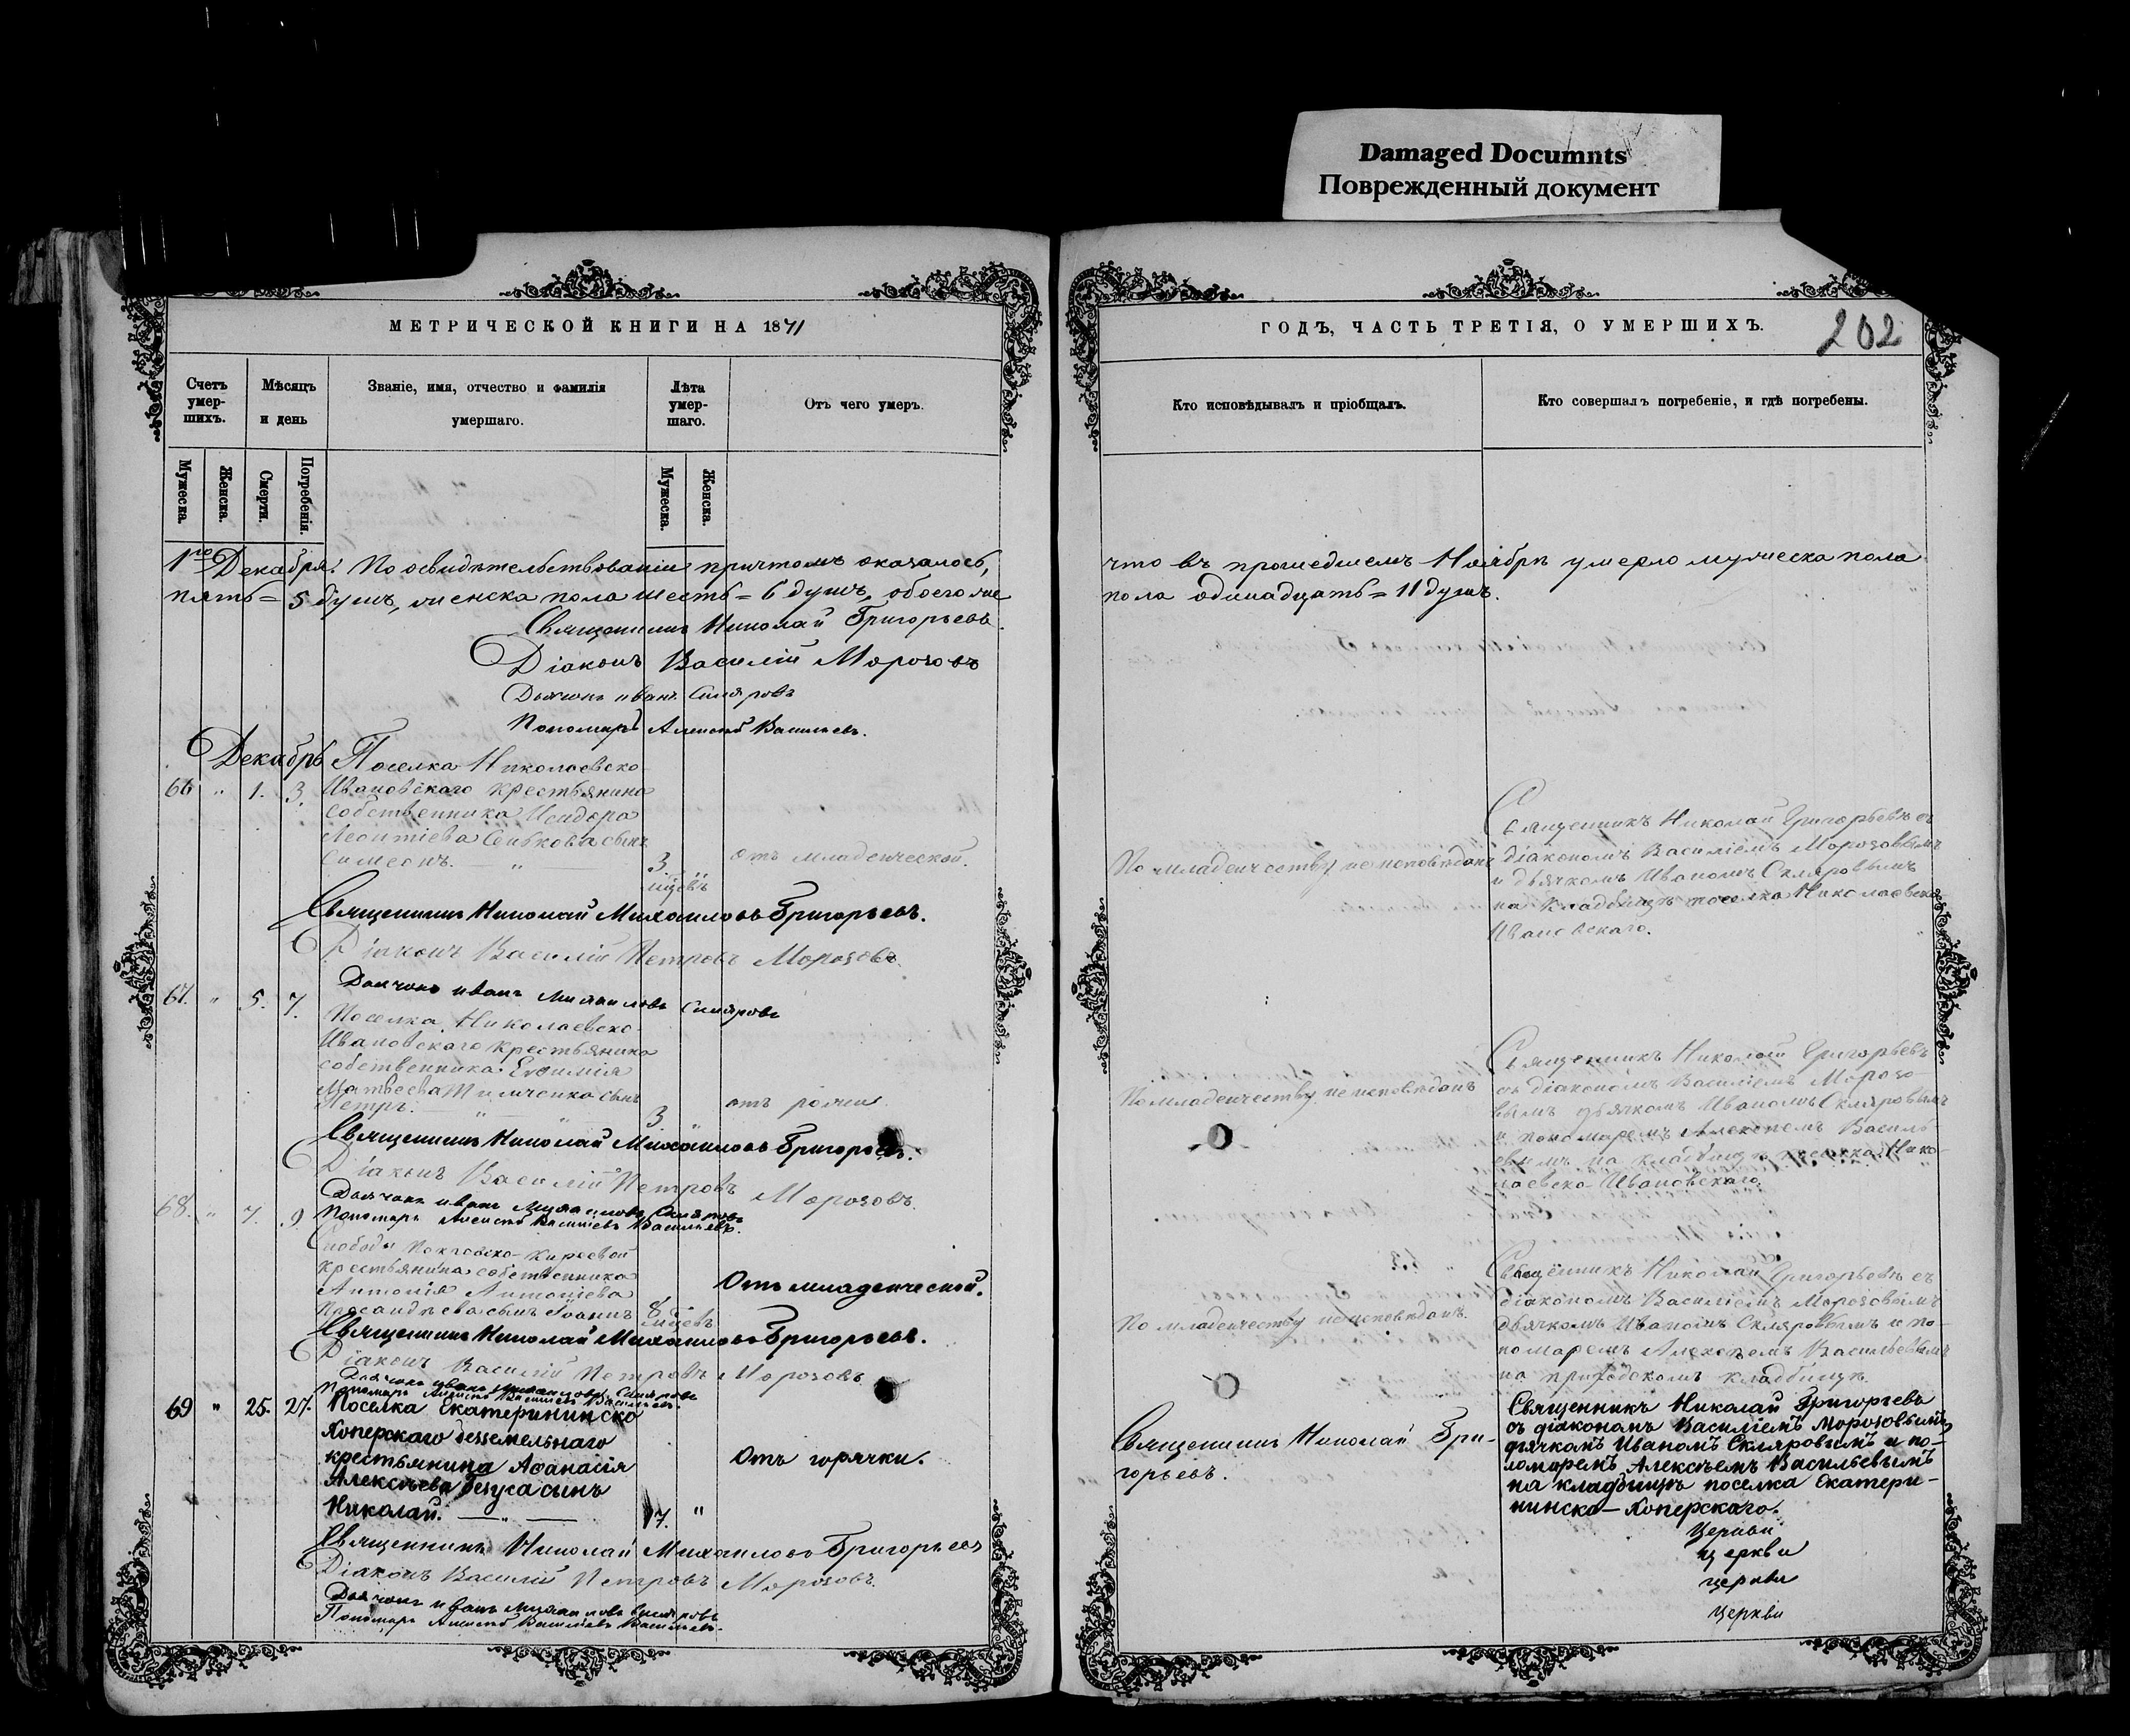 Damaged Documnts
Поврежденный документ
МЕТРИЧЕСКОЙ КНИГИ НА 1871
Счетъ умер-шихъ.
Мѣсяцъ и день
Званіе, имя, отчество и фамилія умершаго.
Лѣта умер-шаго.
Отъ чего умеръ.
Мужеска.
Женска.
Смерти.
Погребенія.
Мужеска.
Женска.
1го Декабря. По освидѣтельствованіи причтомъ оказалось,
пять = 5 душъ, женска пола шесть = 6 душъ, обоего же
Священникъ Николай Григорьевъ
Діаконъ Василій Морозовъ
Дьячокъ Иванъ Скляровъ
Пономарь Алексѣй Васильевъ.
Декабрь
Поселка Николаевско
66 " 1. 3. Ивановскаго крестьянина
собственника Исидора
Леонтіева Сенькова сынъ
Симеонъ. — " — 3 мцевъ
отъ младенческой.
Священникъ Николай Михаиловъ Григорьевъ.
Діаконъ Василій Петровъ Морозовъ
Дьячокъ Иванъ Михаиловъ Скляровъ
67. " 5. 7. Поселка Николаевско
Ивановскаго крестьянина
собственника Евѳимія
Матвѣева сынъ
Петръ. " 3
отъ рожи
Священникъ Николай Михаиловъ Григорьевъ.
Діаконъ Василій Петровъ Морозовъ.
Дьячокъ Иванъ Михаиловъ Скляровъ
Пономарь Алексѣй Васильевъ Васильевъ.
68. " 7. 9
Слободы
крестьянина собственника
Антонія Антоніева
сынъ Іоаннъ 8 мцевъ
Отъ младенческой.
Священникъ Николай Михаиловъ Григорьевъ.
Діаконъ Василій Петровъ Морозовъ
Дьячокъ Иванъ Михаиловъ Скляровъ
Пономарь Алексѣй Васильевъ Васильевъ.
69 " 25. 27. Поселка Екатерининско
Хоперскаго безземельнаго
крестьянина Аѳанасія
Алексѣева сынъ
Николай. — " — 17. "
Отъ горячки.
Священникъ Николай Михаиловъ Григорьевъ
Діаконъ Василій Петровъ Морозовъ.
Дьячокъ Иванъ Михаиловъ Скляровъ
Пономарь Алексѣй Васильевъ Васильевъ.
ГОДЪ, ЧАСТЬ ТРЕТІЯ, О УМЕРШИХЪ.
202
Кто исповѣдывалъ и пріобщалъ.
Кто совершалъ погребеніе, и гдѣ погребены.
что въ прошедшемъ Ноябрѣ умерло мужеска пола
пола одинадцать = 11 душъ.
По младенчеству неисповѣданъ
Священникъ Николай Григорьевъ съ
діакономъ Василіемъ Морозовымъ
и дьячкомъ Иваномъ Скляровымъ
на кладбищѣ поселка Николаевско
Ивановскаго.
По младенчеству неисповѣданъ
Священникъ Николай Григорьевъ
съ діакономъ Василіемъ Морозо-
вымъ дьячкомъ Иваномъ Скляровымъ
и пономаремъ Алексѣемъ Василь-
евымъ на кладбищѣ поселка Нико-
лаевско-Ивановскаго.
По младенчеству неисповѣданъ.
Священникъ Николай Григорьевъ съ
діакономъ Василіемъ Морозовымъ
дьячкомъ Иваномъ Скляровымъ и по-
номаремъ Алексѣемъ Васильевымъ
на приходскомъ кладбищѣ.
Священникъ Николай Гри-
горьевъ.
Священникъ Николай Григорьевъ
съ діакономъ Василіемъ Морозовымъ
дьячкомъ Иваномъ Скляровымъ и по-
номаремъ Алексѣемъ Васильевымъ
на кладбищѣ поселка Екатери-
нинско-Хоперскаго.
Церкви
церкви
церкви
Церкви